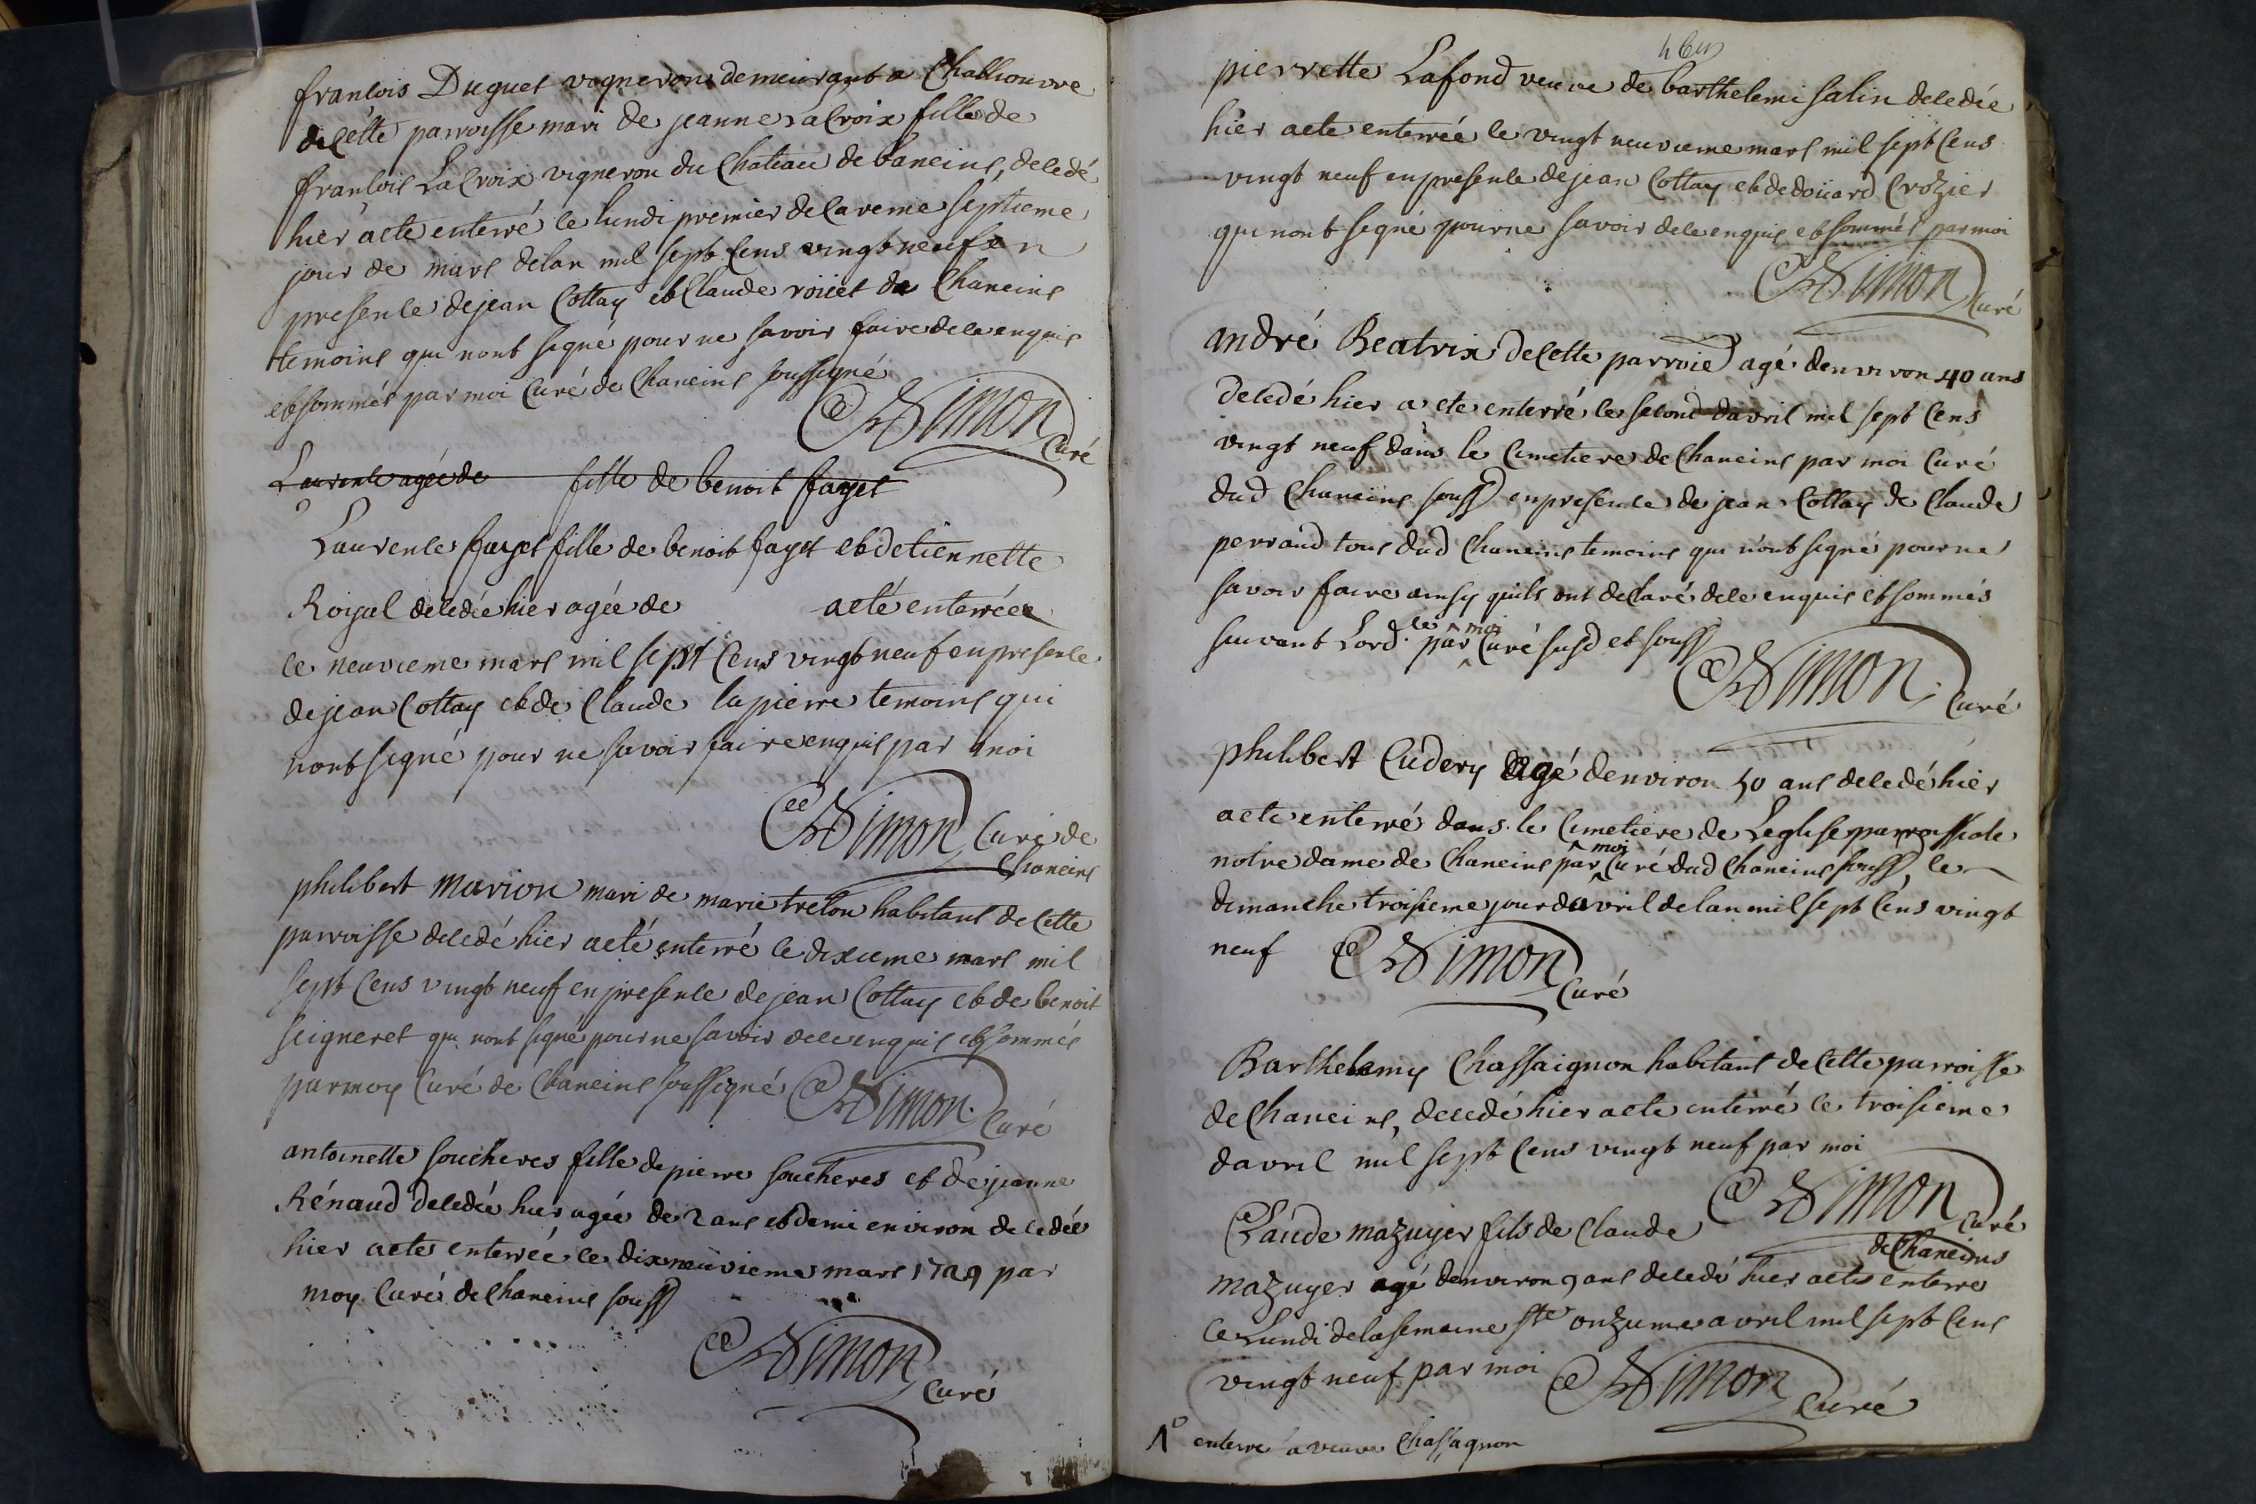 francois Duguet vigneron demeurant a Challiouvre
de cette parroisse mari de jeanne LaCroix fille de
francois LaCroix vigneron du Chateau de baneins, decedé
hier aeté enterré le lundi premier de Careme septieme
jour de mars delan mil sept cens vingt neuf en
presence dejean Cottay et Claude roüet de Chaneins
temoins qui nont signé pour ne savoir faire dece enquis
et sommés par moi Curé de Chaneins soussigné
Simon Curé
Laurence agée de fille de benoit fayet
Laurence fayet fille de benoit fayet et detiennette
Roïgal decedée hier agée de aeté enterrée
le neuvieme mars mil sept cens vingt neuf en presence
de jean Cottay et de Claude lapierre temoins qui
nont signé pour ne savoir faire enquis par moi
Simon Curé de
Chaneins
philibert Marion mari de marie treton habitant de Cette
parroisse decedé hier aeté enterré le dixieme mars mil
sept cens vingt neuf en presence de jean Cottay et de benoit
seigneret qui nont signé pour ne savoir dece enquis et sommés
par moy Curé de Chaneins soussigné Simon Curé
antoinette soucheres fille de pierre soucheres et de jeanne
Rénaud decedée hier agée de 2 ans et demi environ decedée
hier aeté enterrée le dixneuvieme mars 1729 par
moy Curé de Chaneins souss
Simon
Curé
pierrette Lafond veuve de barthelemi salin decedée
hier aeté enterrée le vingt neuvieme mars mil sept cens
vingt neuf en presence de jean Cottay et dedoüard Crozier
qui nont signé pour ne savoir dece enquis et sommés par moi
Simon Curé
andré Beatrix de Cette parroie agé denviron 40 ans
decedé hier a ete enterré le second davril mil sept cens
vingt neuf dans le Cimetiere de Chaneins par moi Curé
dud Chaneins souss en presence de jean Cottay de Claude
perraud tous dud Chaneins temoins qui nont signé pour ne
savoir faire ainsy quils ont declaré dece enquis et sommés
suivant Lord.ce par moi Curé susd et souss
Simon Curé
philibert Cudery agé denviron 50 ans decedé hier
aeté enterré dans le Cimetiere de Leglise parroissiale
notre dame de Chaneins par moi Curé dud Chaneins souss, le
dimanche troisieme jour davril de lan mil sept cens vingt
neuf Simon Curé
Barthelemy Chassaignon habitant de Cette parroisse
de Chaneins, decedé hier aeté enterré le troisieme
davril mil sept cens vingt neuf par moi
Simon Curé
de Chaneins
Claude mazuyer fils de Claude
mazuyer agé denviron 9 ans decedé hier aeté enterré
le Lundi de la semaine ste onzieme avril mil sept cens
vingt neuf par moi Simon Curé
1° enterré la veuve Chassagnon